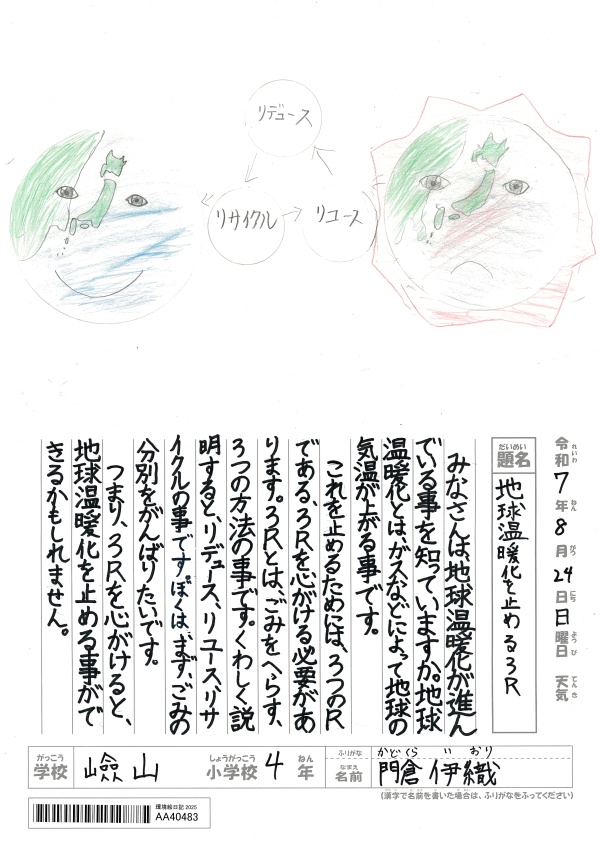 リデュース
リサイクル
リユース
令和7年8月24日日曜日 天気
れいわ ねん がつ にち ようび てんき
だいめい
題名
地球温暖化を止める3R
みなさんは、地球温暖化が進ん
でいる事を知っていますか。地球
温暖化とは、ガスなどによって地球の
気温が上がる事です。
これを止めるためには、3つのR
である、3Rを心がける必要があ
ります。3Rとは、ごみをへらす、
3つの方法の事です。くわしく説
明すると、リデュース、リユース、リサ
イクルの事です。ぼくは、まず、ごみの
分別をがんばりたいです。
つまり、3Rを心がけると、
地球温暖化を止める事がで
きるかもしれません。
がっこう しょうがっこう ねん ふりがな かどくら いおり
学校 嶮山 小学校 4年 なまえ 名前 門倉伊織
(漢字で名前を書いた場合は、ふりがなをふってください)
環境絵日記2025
AA40483